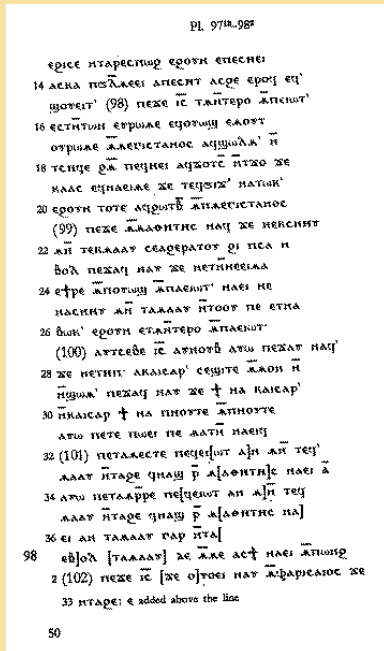 Pl. 97¹⁸–98²
ⲉϩⲓⲥⲉ ⲛⲧⲁⲣⲉⲥⲡⲱϩ ⲉϩⲟⲩⲛ ⲉⲡⲉⲥⲏⲉⲓ
14 ⲁⲥⲕⲁ ⲡϭⲗ̅ⲙⲉⲉⲓ ⲁⲡⲉⲥⲏⲧ ⲁⲥϩⲉ ⲉⲣⲟϥ ⲉϥ'
ϣⲟⲩⲉⲓⲧ' (98) ⲡⲉϫⲉ ⲓ̅ⲥ̅ ⲧⲙⲛ̅ⲧⲉⲣⲟ ⲙ̅ⲡⲉⲓⲱⲧ'
16 ⲉⲥⲧⲛ̅ⲧⲱⲛ ⲉⲩⲣⲱⲙⲉ ⲉϥⲟⲩⲱϣ ⲉⲙⲟⲩⲧ
ⲟⲩⲣⲱⲙⲉ ⲙ̅ⲙⲉⲅⲓⲥⲧⲁⲛⲟⲥ ⲁϥϣⲱⲗⲙ' ⲛ̅
18 ⲧⲥⲏϥⲉ ϩⲙ̅ ⲡⲉϥⲏⲉⲓ ⲁϥϫⲟⲧⲥ̅ ⲛ̅ⲧϫⲟ ϫⲉ
ⲕⲁⲁⲥ ⲉϥⲛⲁⲉⲓⲙⲉ ϫⲉ ⲧⲉϥϭⲓϫ' ⲛⲁⲧⲱⲕ'
20 ⲉϩⲟⲩⲛ ⲧⲟⲧⲉ ⲁϥϩⲱⲧⲃ̅ ⲙ̅ⲡⲙⲉⲅⲓⲥⲧⲁⲛⲟⲥ
(99) ⲡⲉϫⲉ ⲙ̅ⲙⲁⲑⲏⲧⲏⲥ ⲛⲁϥ ϫⲉ ⲛⲉⲕⲥⲛⲏⲩ
22 ⲙⲛ̅ ⲧⲉⲕⲙⲁⲁⲩ ⲥⲉⲁϩⲉⲣⲁⲧⲟⲩ ϩⲓ ⲡⲥⲁ ⲛ
ⲃⲟⲗ ⲡⲉϫⲁϥ ⲛⲁⲩ ϫⲉ ⲛⲉⲧⲛ̅ⲛⲉⲉⲓⲙⲁ
24 ⲉⲧⲣⲉ ⲙ̅ⲡⲟⲩⲱϣ ⲙ̅ⲡⲁⲉⲓⲱⲧ' ⲛⲁⲉⲓ ⲛⲉ
ⲛⲁⲥⲛⲏⲩ ⲙⲛ̅ ⲧⲁⲙⲁⲁⲩ ⲛ̅ⲧⲟⲟⲩ ⲡⲉ ⲉⲧⲛⲁ
26 ⲃⲱⲕ' ⲉϩⲟⲩⲛ ⲉⲧⲙⲛ̅ⲧⲉⲣⲟ ⲙ̅ⲡⲁⲉⲓⲱⲧ'
(100) ⲁⲩⲧⲥⲉⲃⲉ ⲓ̅ⲥ̅ ⲁⲩⲛⲟⲩⲃ ⲁⲩⲱ ⲡⲉϫⲁⲩ ⲛⲁϥ'
28 ϫⲉ ⲛⲉⲧⲏⲡ' ⲁⲕⲁⲓⲥⲁⲣ' ⲥⲉϣⲓⲧⲉ ⲙ̅ⲙⲟⲛ ⲛ̅
ⲛ̅ϣⲱⲙ' ⲡⲉϫⲁϥ ⲛⲁⲩ ϫⲉ ϯ ⲛⲁ ⲕⲁⲓⲥⲁⲣ'
30 ⲛ̅ⲕⲁⲓⲥⲁⲣ ϯ ⲛⲁ ⲡⲛⲟⲩⲧⲉ ⲙ̅ⲡⲛⲟⲩⲧⲉ
ⲁⲩⲱ ⲡⲉⲧⲉ ⲡⲱⲉⲓ ⲡⲉ ⲙⲁⲧⲛ̅ⲛⲁⲉⲓϥ
32 (101) ⲡⲉⲧⲁⲙⲉⲥⲧⲉ ⲡⲉϥⲉⲓ[ⲱⲧ ⲁ]ⲛ ⲙⲛ̅ ⲧⲉϥ'
ⲙⲁⲁⲩ ⲛ̅ⲧⲁϩⲉ ϥⲛⲁϣ ⲣ̅ ⲙ[ⲁⲑⲏⲧⲏ]ⲥ ⲛⲁⲉⲓ ⲁ̅
34 ⲁⲩⲱ ⲡⲉⲧⲁⲙⲣ̅ⲣⲉ ⲡⲉ[ϥⲉⲓⲱⲧ ⲁⲛ ⲙ]ⲛ̅ ⲧⲉϥ
ⲙⲁⲁⲩ ⲛ̅ⲧⲁϩⲉ ϥⲛⲁϣ ⲣ̅ ⲙ[ⲁⲑⲏⲧⲏⲥ ⲛⲁ]
36 ⲉⲓ ⲁⲛ ⲧⲁⲙⲁⲁⲩ ⲅⲁⲣ ⲛ̅ⲧⲁ[
98 ⲉⲃ]ⲟⲗ [ⲧⲁⲙⲁⲁⲩ] ⲇⲉ ⲙ̅ⲙⲉ ⲁⲥϯ ⲛⲁⲉⲓ ⲙ̅ⲡⲱⲛϩ
2 (102) ⲡⲉϫⲉ ⲓ̅ⲥ̅ [ϫⲉ ⲟ]ⲩⲟⲉⲓ ⲛⲁⲩ ⲙ̅ⲫⲁⲣⲓⲥⲁⲓⲟⲥ ϫⲉ
33 ⲛⲧⲁϩⲉ: ⲉ added above the line
50